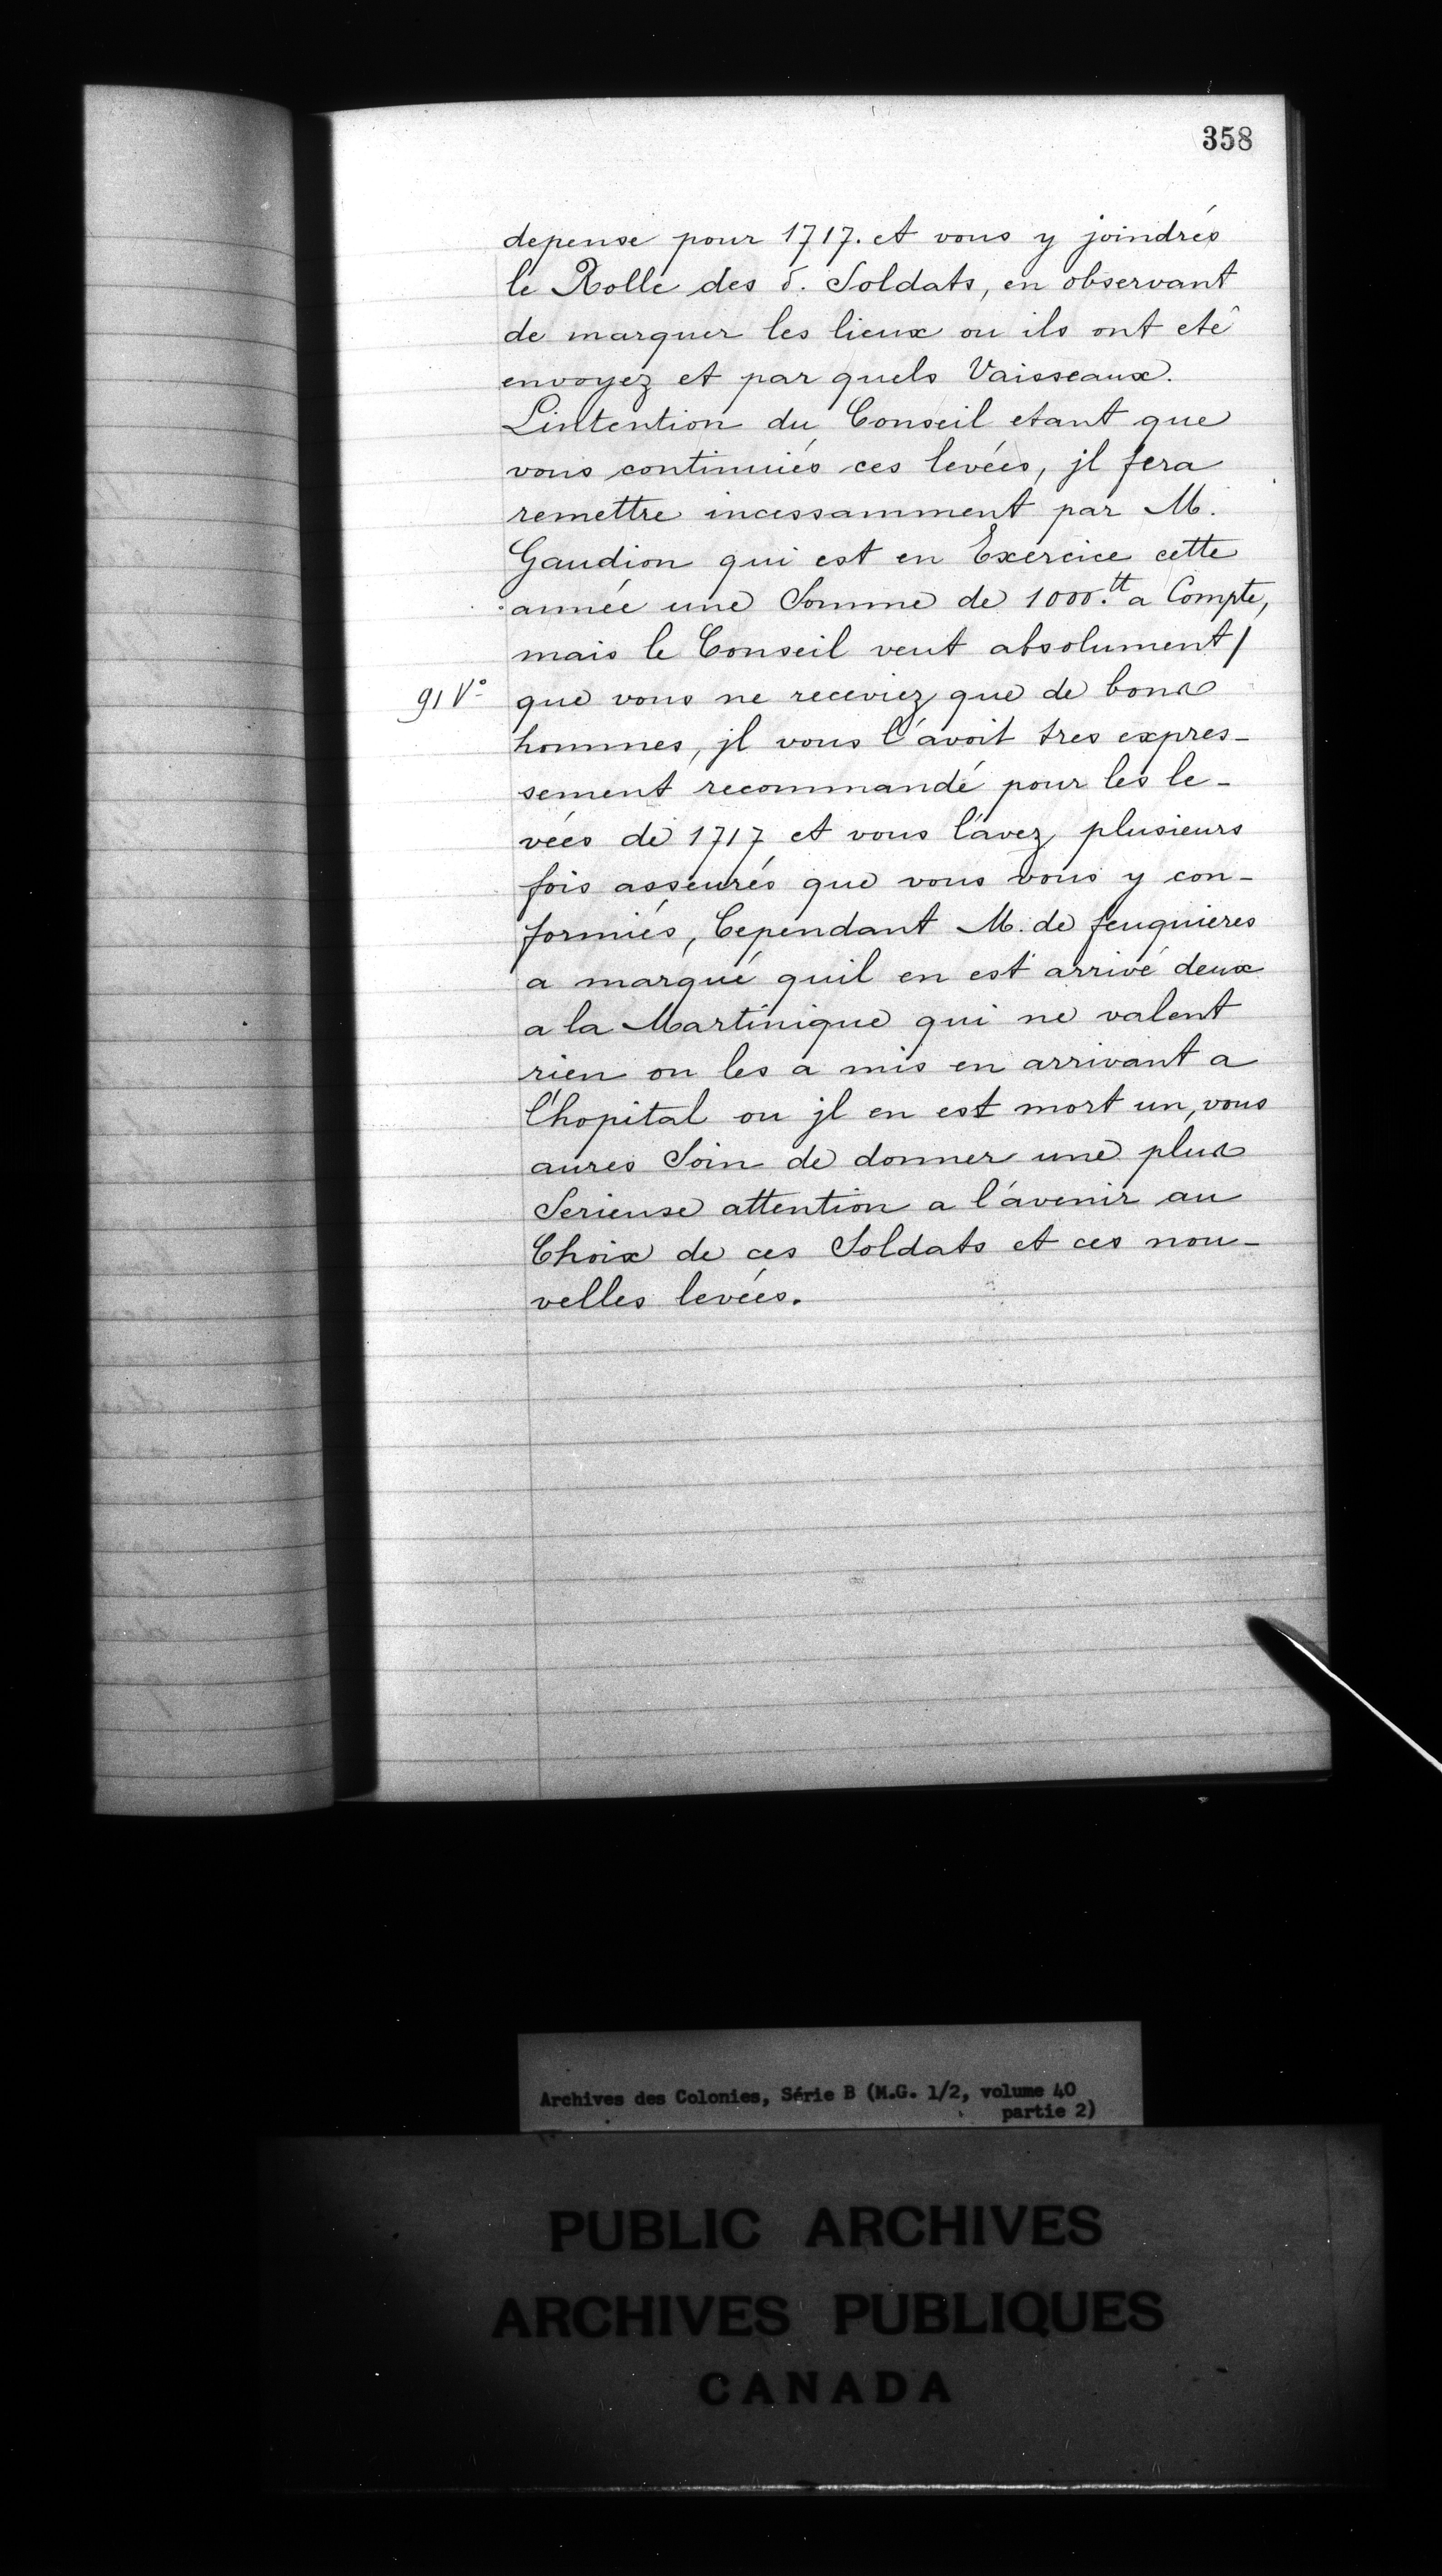 358
depense pour 1717. et vous y joindrés
le Rolle des d. Soldats, en observant
de marquer les lieux ou ils ont eté
envoyez et par quels Vaisseaux.
Lintention du Conseil etant que
vous continuiés ces levées, jl fera
remettre incessamment par M.
Gaudion qui est en Exercice cette
année une Somme de 1000.tt a Compte,
mais le Conseil veut absolument/
91 Vo que vous ne receviez que de bons
hommes, jl vous l'avoit tres expres-
sement recommandé pour les le-
vées de 1717 et vous l'avez plusieurs
fois asseurés que vous vous y con-
formiés, Cependant M. de feuquieres
a marqué quil en est arrivé deux
a la Martinique qui ne valent
rien on les a mis en arrivant a
l'hopital ou jl en est mort un, vous
aures Soin de donner une plus
Serieuse attention a l'avenir au
Choix de ces Soldats et ces nou-
velles levées.
Archives des Colonies, Série B (M.G. 1/2, volume 40
partie 2)
PUBLIC ARCHIVES
ARCHIVES PUBLIQUES
CANADA